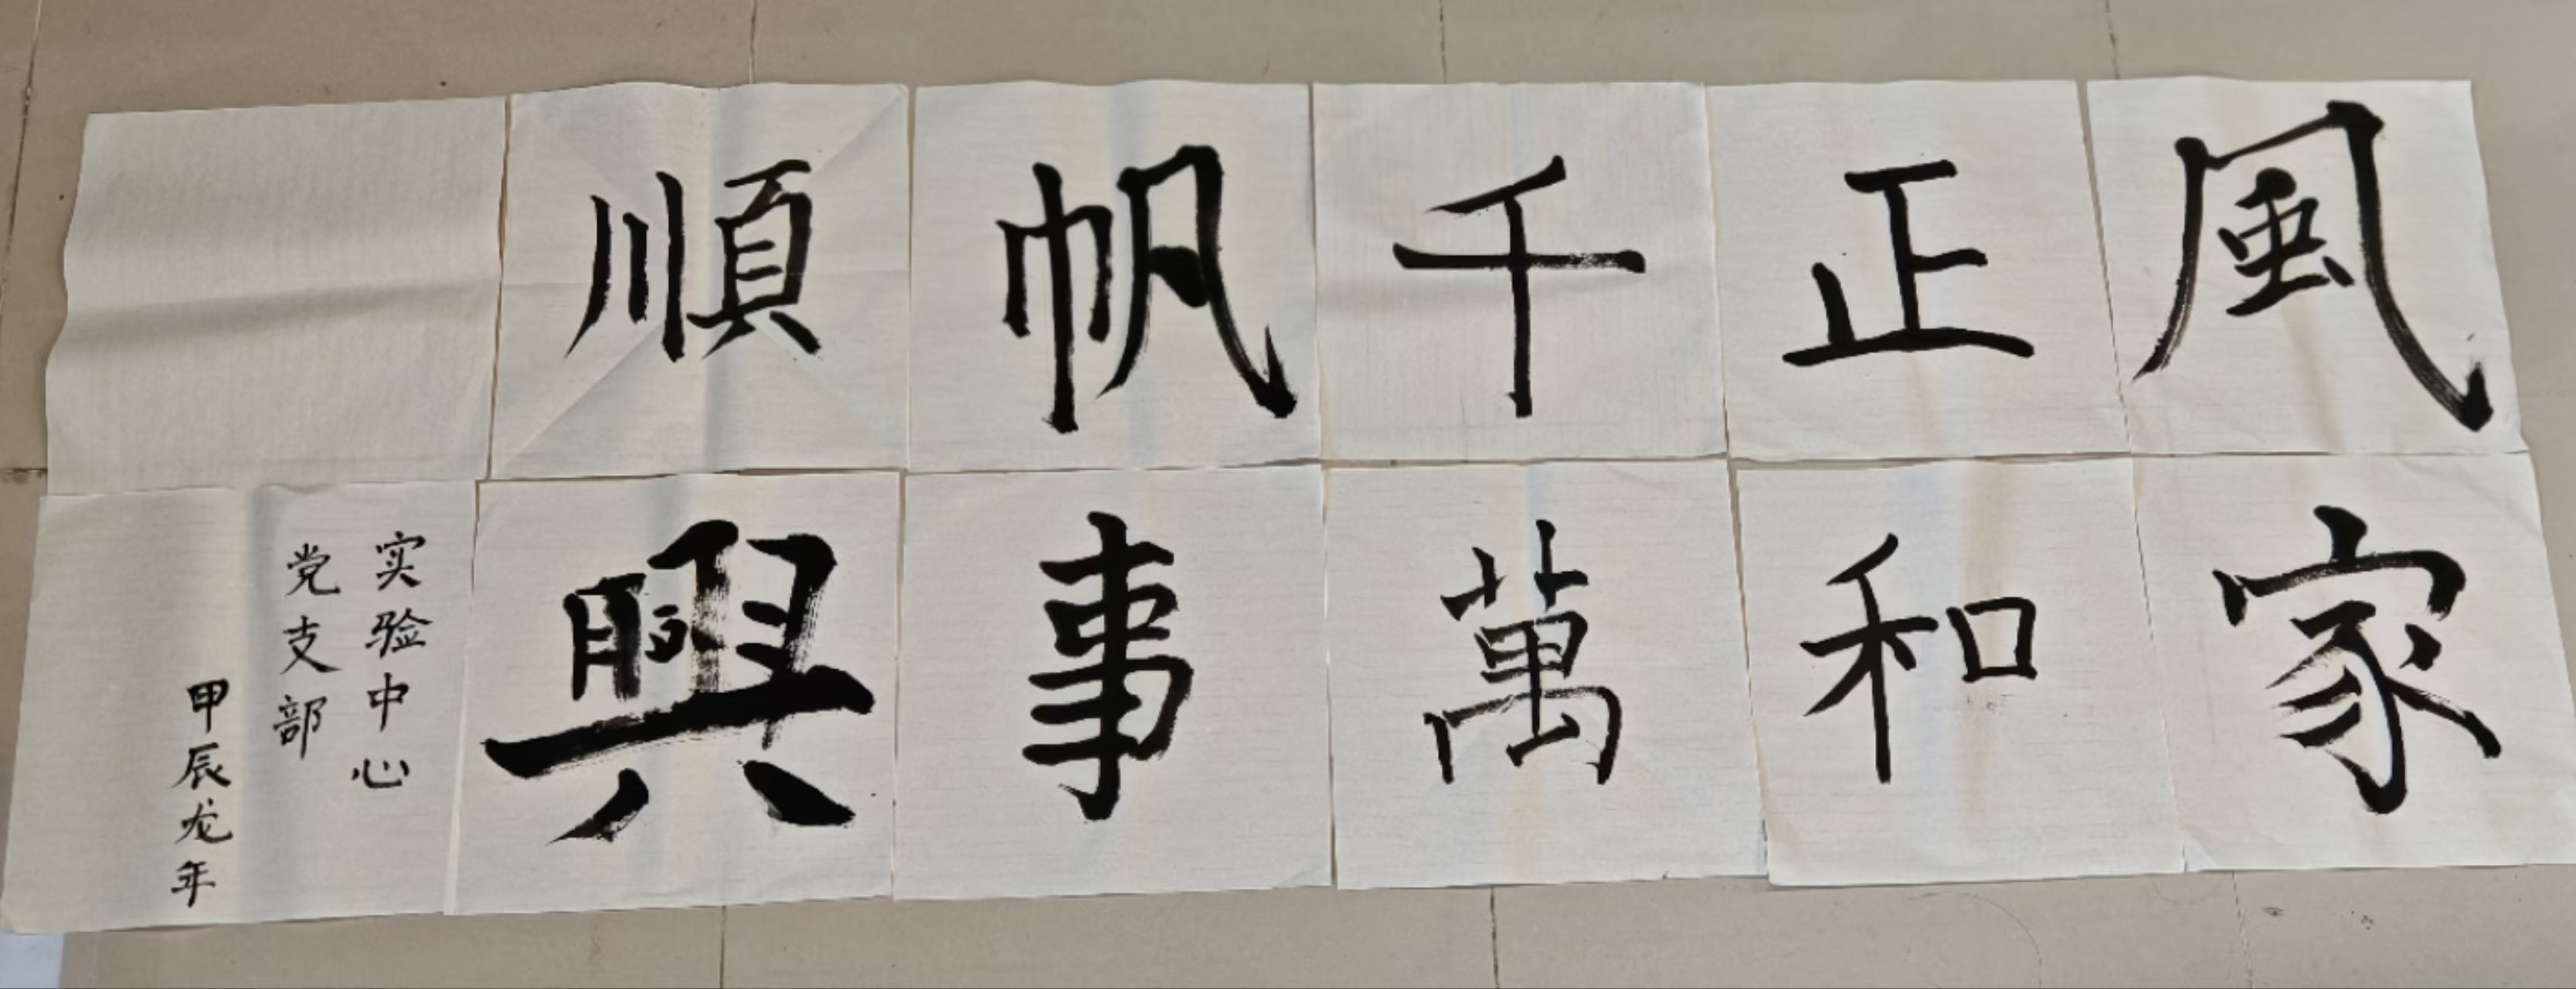 風正千帆順
家和萬事興
实验中心
党支部
甲辰龙年